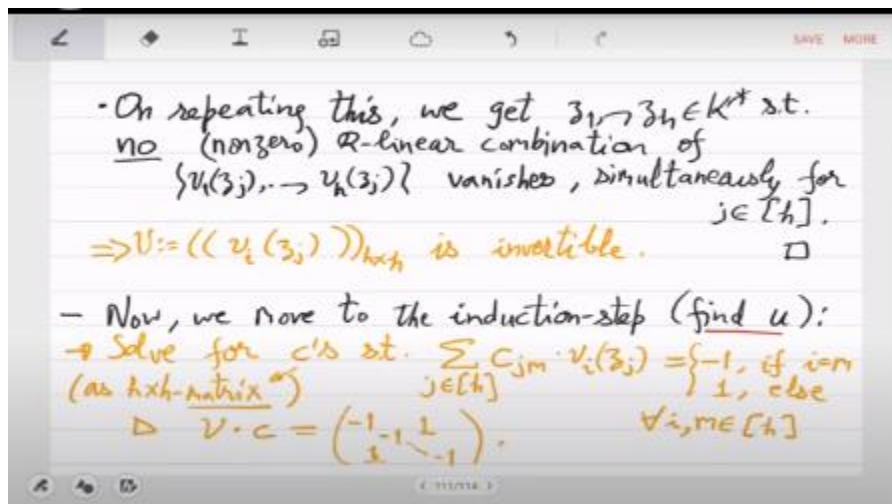 SAVE MORE
· On repeating this, we get z₁,⇁z_h ∈ K* s.t.
no (nonzero) Q-linear combination of
{v₁(z_j),..⇁ v_h(z_j)} vanishes, simultaneously for
j∈[h].
⇒ V := ((v_i(z_j)))_{h×h} is invertible. □
- Now, we move to the induction-step (find u):
→ Solve for c's st. Σ_{j∈[h]} C_{jm}·v_i(z_j) = {-1, if i=m
(as h×h-matrix) 1, else
▷ V·C = (-1 -1 1 1 -1). ∀i,m∈[h]
< 111/114 >